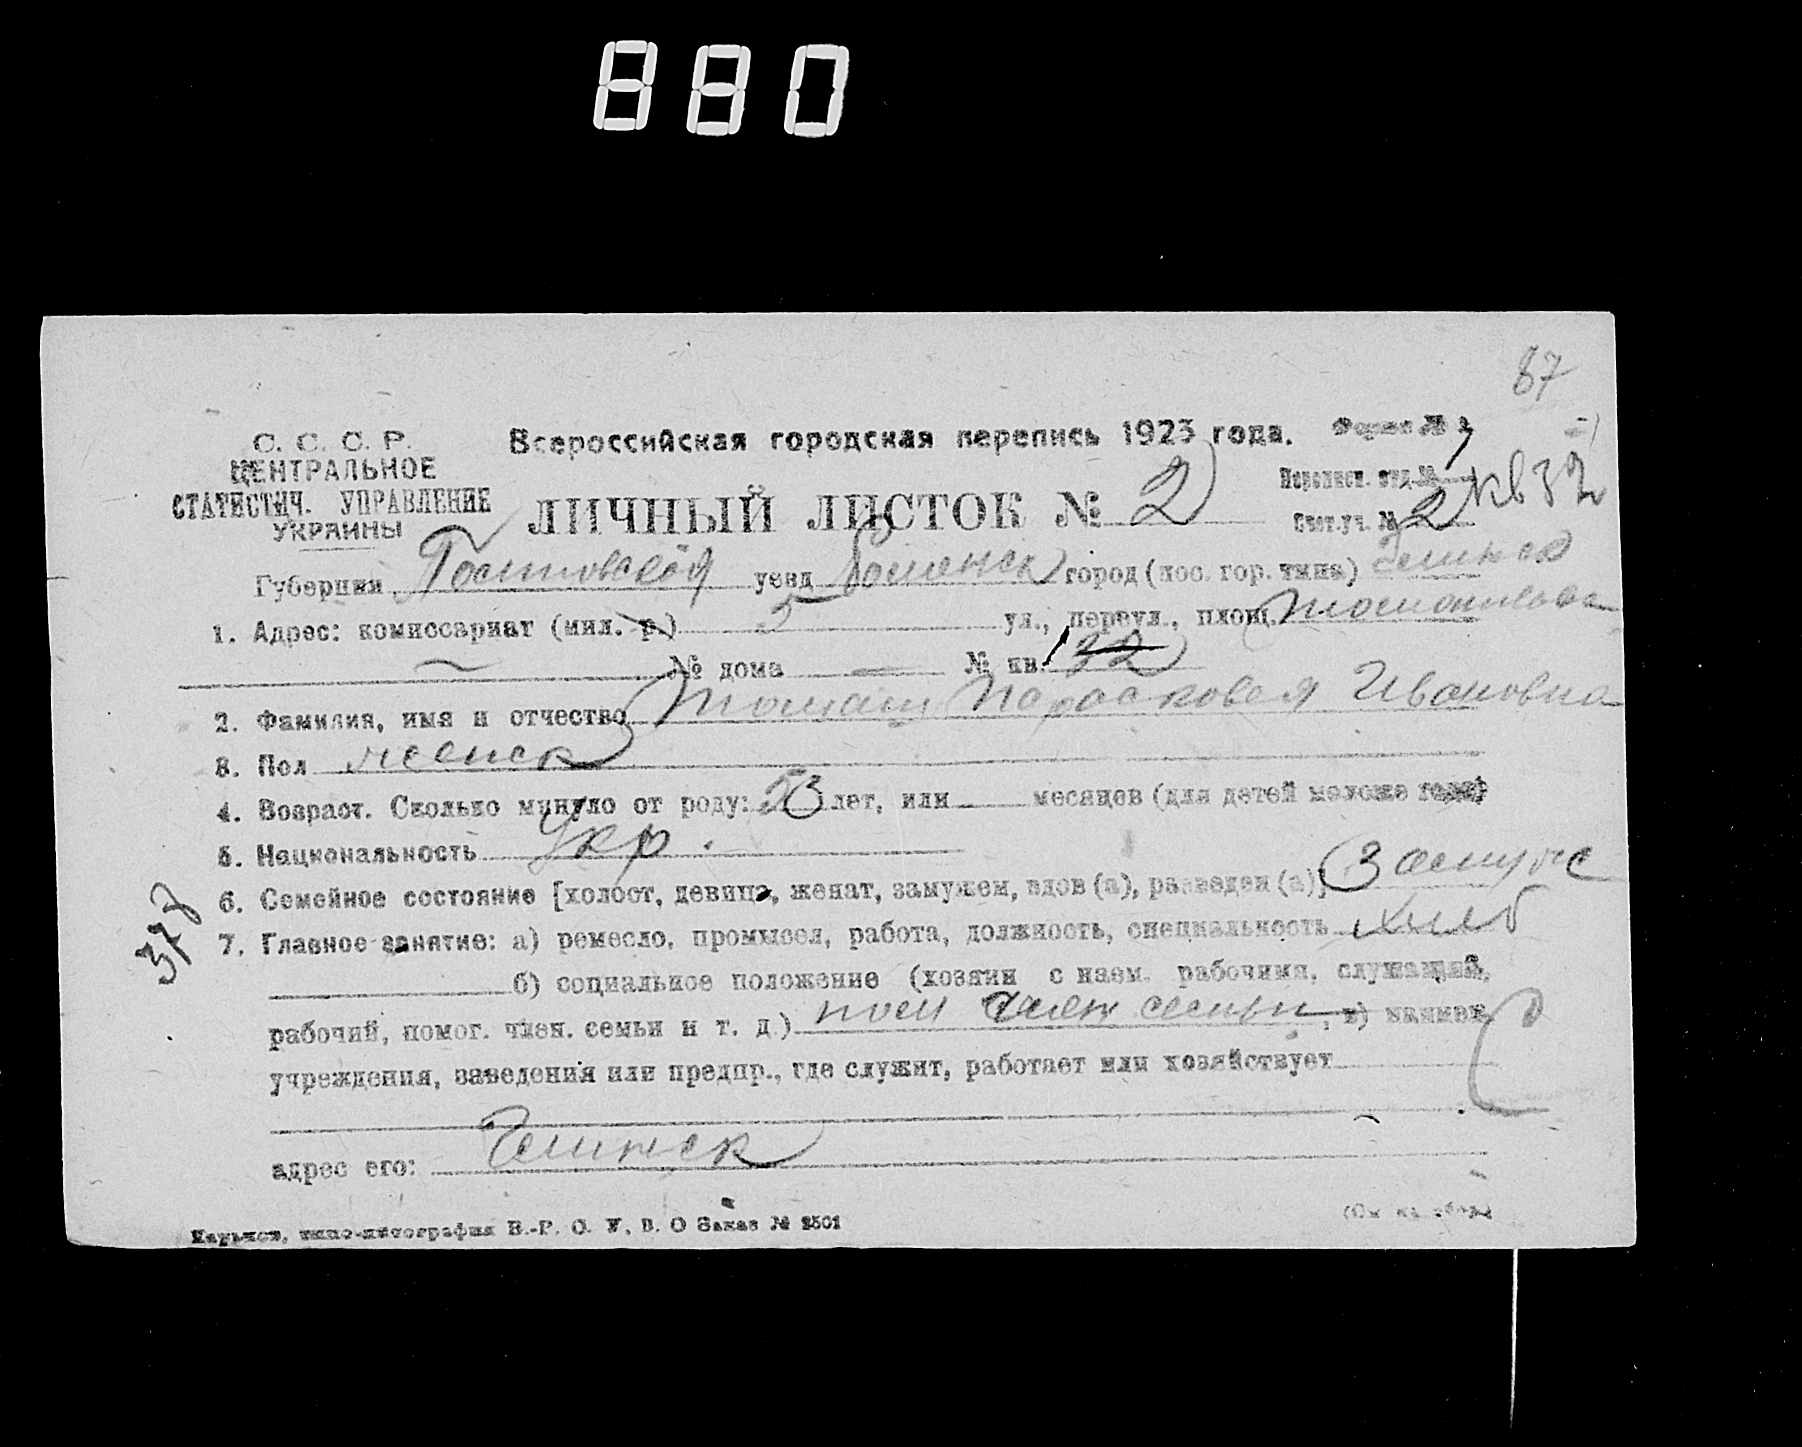 880
87
С. С. С. Р.
ЦЕНТРАЛЬНОЕ
СТАТИСТИЧ. УПРАВЛЕНИЕ
УКРАИНЫ
Всероссийская городская перепись 1923 года.
Форма №
ЛИЧНЫЙ ЛИСТОК № 2
Переписн. отд. №
Счет. уч. № 2 кв 32
Губернии уезд Роменск город (пос. гор. типа)
1. Адрес: комиссариат (мил. р.) 5 ул., переул., площ.
№ дома — № кв. 32
2. Фамилия, имя и отчество Парасковея Ивановна
3. Пол женск
4. Возраст. Сколько минуло от роду: 53 лет, или месяцев (для детей моложе года)
5. Национальность Укр.
6. Семейное состояние [холост, девица, женат, замужем, вдов (а), разведен (а)] Замуже
378
7. Главное занятие: а) ремесло, промысел, работа, должность, специальность хлеб
б) социальное положение (хозяин с наем. рабочими, служащий,
рабочий, помог. член. семьи и т. д.) пом член семьи, в) наимен.
учреждения, заведения или предпр., где служит, работает или хозяйствует
адрес его: Глинск
Харьков, типо-литография В.-Р. О. У. В. О Заказ № 2501
(См. на обор.)